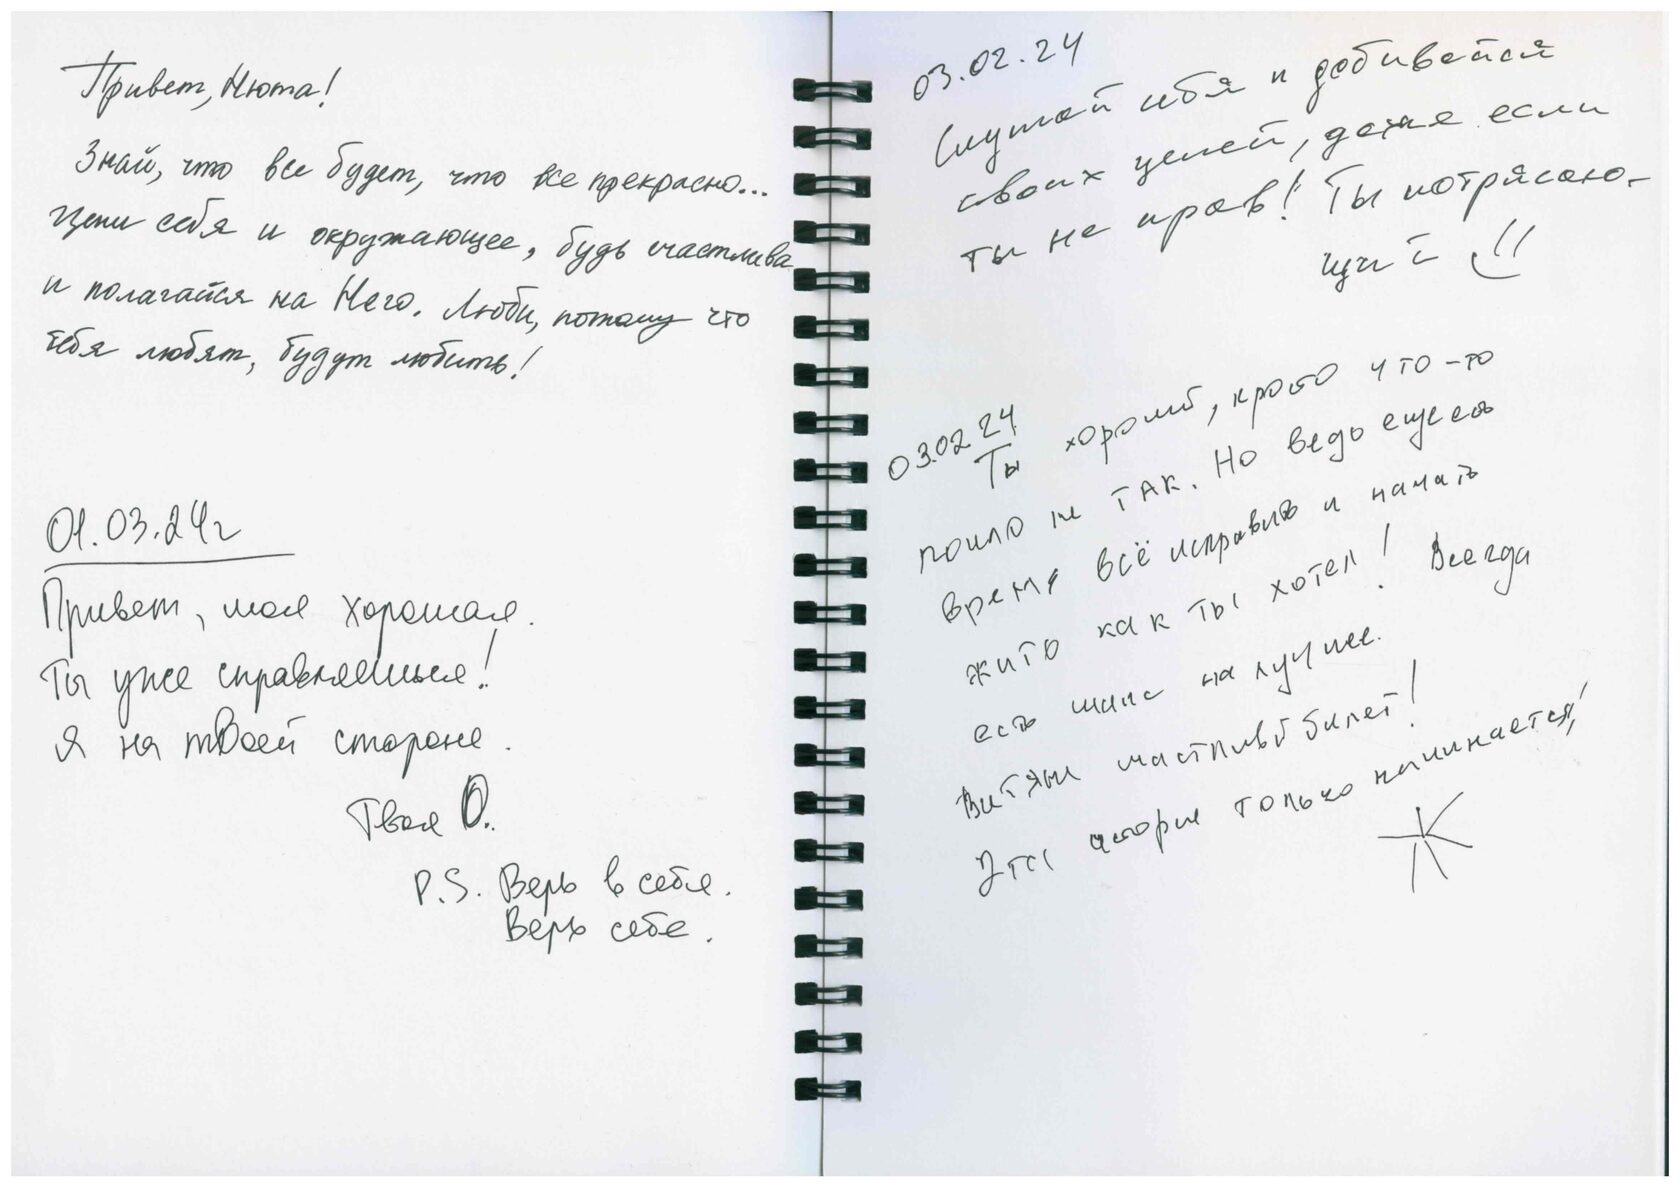 Привет, Нюта!
Знай, что все будет, что все прекрасно...
Цени себя и окружающее, будь счастлива
и полагайся на Него. Люби, потому что
тебя любят, будут любить!
01.03.24г
Привет, моя хорошая.
Ты уже справляешься!
Я на твоей стороне.
Твоя О.
P.S. Верь в себя.
Верь себе.
03.02.24
Слушай себя и добивайся
своих целей, даже если
ты не прав! Ты потрясаю-
щий
03.02 24
Ты хороший, просто что-то
пошло не так. Но ведь еще есть
время всё исправить и начать
жить как ты хотел! Всегда
есть шанс на лучшее.
Вытяни счастливый билет!
Эта история только начинается!